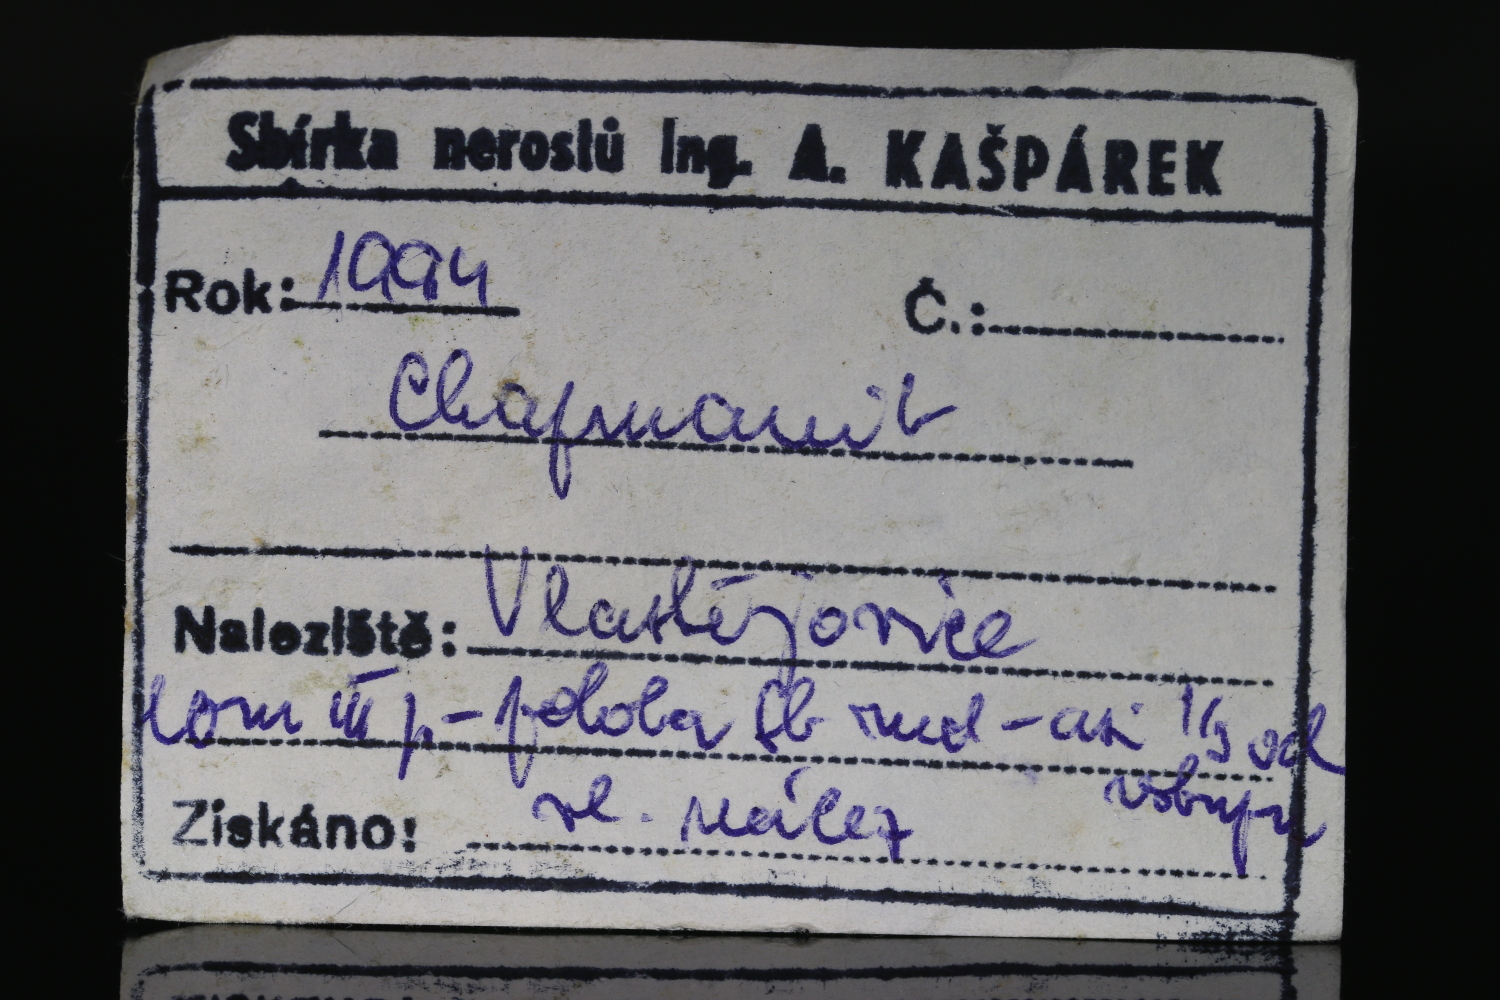 Sbírka nerostů Ing. A. KAŠPÁREK
Rok: 1994 Č.:
Chapmanit
Naleziště: Vlastějovice
lom III p - poloha Sb rud - asi 1/3 od
vstupu
Získáno: vl. nález